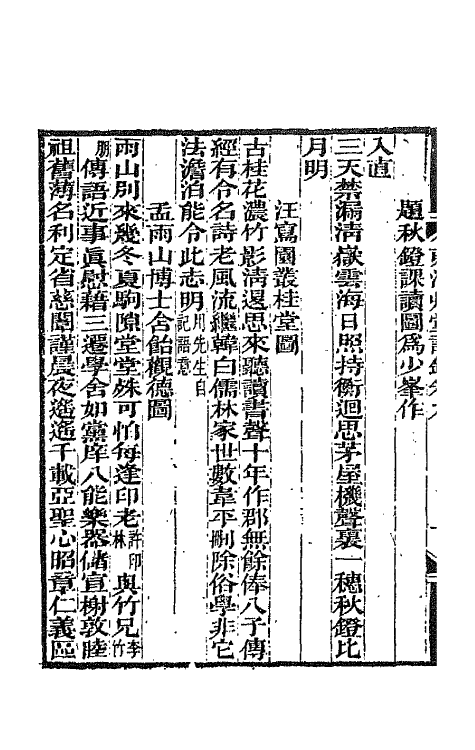 題秋鐙課讀圖爲少峯作
入直
三天禁漏淸嶽雲海日照持衡迴思茅屋機聲裏一穗秋鐙比
月明
汪寫園叢桂堂圖
古桂花濃竹影淸還思來聽讀書聲十年作郡無餘俸八子傳
經有令名詩老風流繼韓白儒林家世數韋平刪除俗學非它
法澹泊能令此志明川先生自記語意
孟雨山博士含飴觀德圖
雨山別來幾冬夏駒隙堂堂殊可怕每逢印老許印林與竹兄李竹
朋傳語近事眞慰藉三遷學舍如黨庠八能樂器儲宣榭敦睦
祖舊薄名利定省慈闈謹晨夜遙遙千載亞聖心昭章仁義區